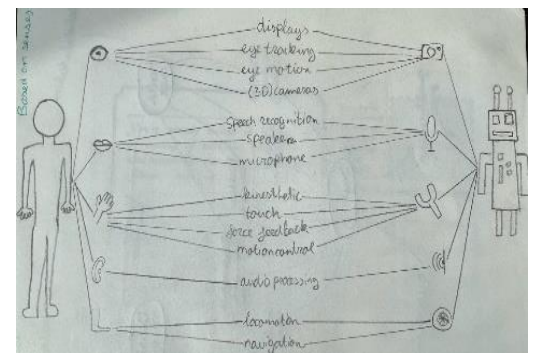 Based on senses
displays
eye tracking
eye motion
(3D)cameras
speech recognition
speakers
microphone
kinesthetic
touch
force feedback
motion control
audio processing
locomotion
navigation